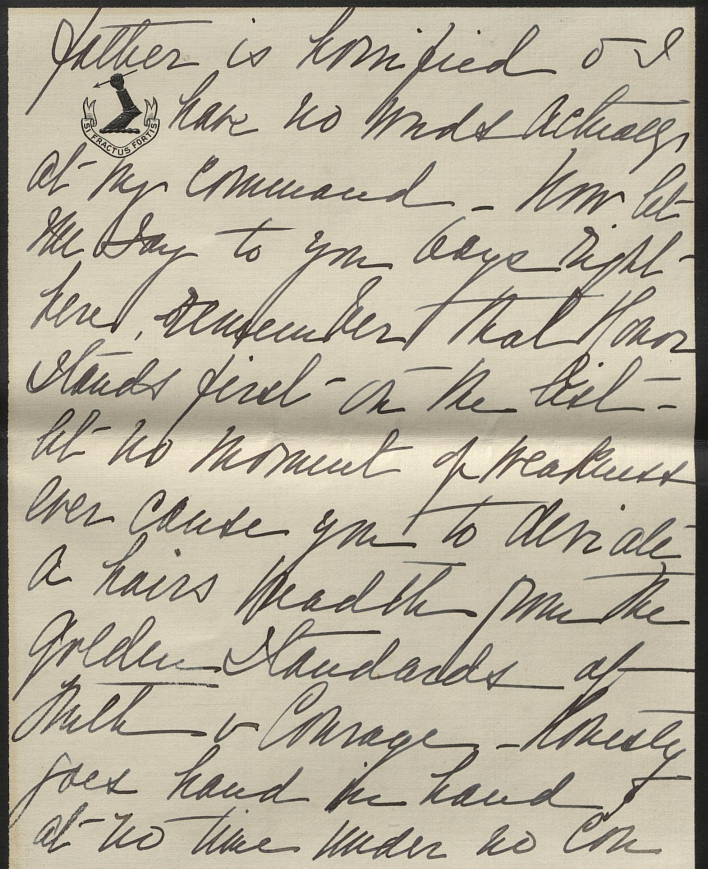 father is horrified & I
SI FRACTUS FORTIS
have no words actually
at my command - Now let
me say to you boys right
here, remember that Honor
stands first on the list -
let no moment of weakness
ever cause you to deviate
a hairs breadth from the
golden standards of
truth & Courage - Honesty
goes hand in hand &
at no time under no con